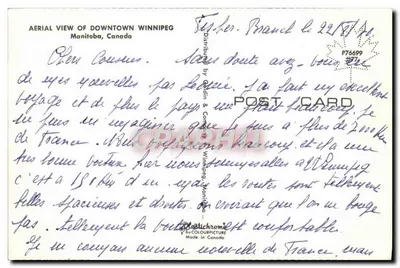 AERIAL VIEW OF DOWNTOWN WINNIPEG
Manitoba, Canada
Fisher. Branch le 22
P76699
Chers Cousins. Sans doute avez-vous eu
de mes nouvelles par j'ai fait un excellent
voyage et de plus le pays me plait beaucoup. je
POST CARD
Distributed by
Winnipeg, Manitoba
ne peux m'imaginer que je suis a plus de 7000 Km
de France. Nous voyageons beaucoup, et a une
tres bonne voiture nous sommes allés a Winnipeg
c'est a 150 Km d'ici. mais les routes sont tellement
belles, spacieuses et droites. on croirait que l'on ne bouge
pas. tellement la voiture est confortable.
Plastichrome
by COLOURPICTURE
Made in Canada
Je ne connais aucune nouvelle de France, mais